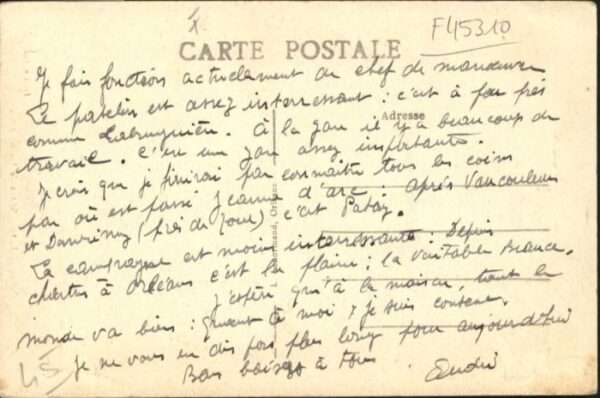 F45310
CARTE POSTALE
Je fais fonctions actuellement de chef de manœuvre
Le patelin est assez interressant : c'est à peu près
Adresse
comme Labruguière. À la gare il y a beaucoup de
travail. C'est une gare assez importante.
Je crois que je finirai par connaitre tous les coins
par où est passé Jeanne d'arc : après Vaucouleurs
et Domrémy (près de Toul) c'est Patay.
La campagne est moins interressante : Depuis
chartres à Orléans c'est la plaine ; la véritable Beauce.
J'espère qu'à la maison, tout le
monde va bien : quant à moi je suis content.
Je ne vous en dis pas plus long pour aujourd'hui
45
Bons baisers à tous
André